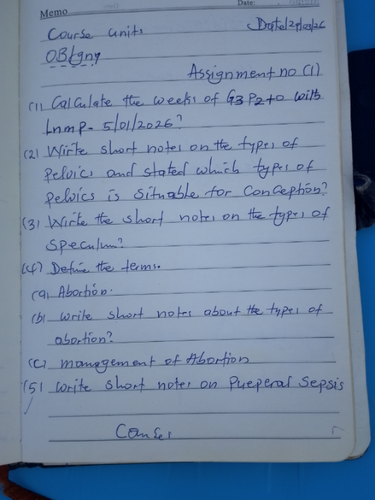 Memo Date:
Course units
OB/gny
Assignment no (1)
(1) Calculate the weeks of G3P2+0 with
Lnmp- 5/01/2026?
(2) Write short notes on the types of
pelvics and stated which types of
pelvics is situable for conception?
(3) Write the short notes on the types of
speculum?
(4) Define the terms.
(a) Abortion.
(b) write short notes about the types of
abortion?
(c) management of Abortion
(5) write short notes on Pueperal Sepsis